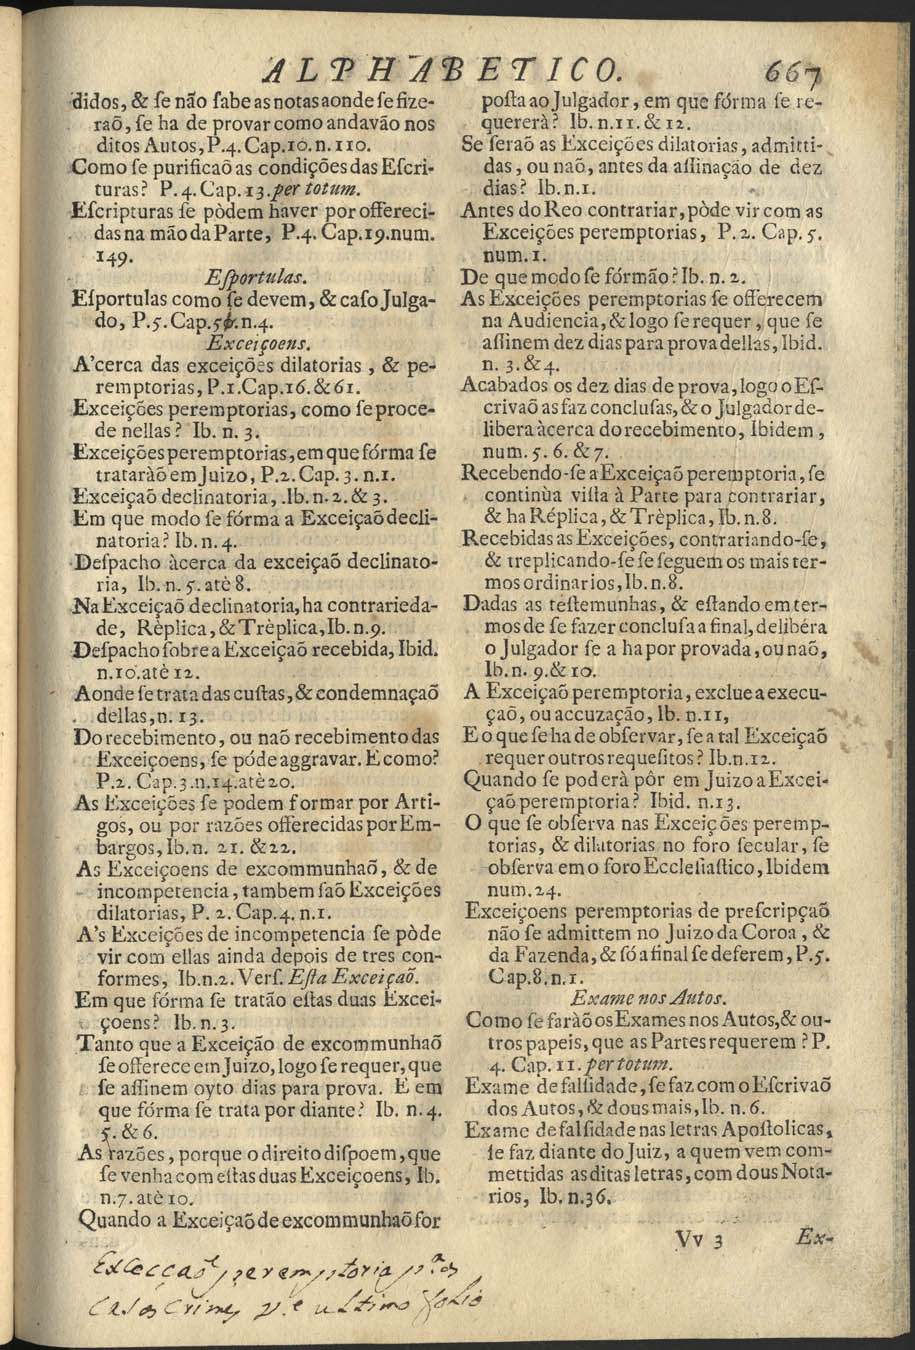 ALPHABETICO. 667
didos, & ſe não ſabe as notas aonde ſe fize-
raõ, ſe ha de provar como andavão nos
ditos Autos, P.4. Cap.10. n.110.
Como ſe purificaõ as condições das Eſcri-
turas? P. 4. Cap. 13. per totum.
Eſcripturas ſe pòdem haver por offereci-
das na mão da Parte, P.4. Cap.19. num.
149.
Eſportulas.
Eſportulas como ſe devem, & caſo Julga-
do, P.5. Cap. n.4.
Exceiçoens.
A'cerca das exceições dilatorias, & pe-
remptorias, P.1. Cap.16. & 61.
Exceições peremptorias, como ſe proce-
de nellas? Ib. n. 3.
Exceições peremptorias, em que fórma ſe
trataràõ em Juizo, P.2. Cap. 3. n.1.
Exceiçaõ declinatoria, .Ib. n. 2. & 3.
Em que modo ſe fórma a Exceiçaõ decli-
natoria? Ib. n. 4.
Deſpacho àcerca da exceiçaõ declinato-
ria, Ib. n. 5. atè 8.
Na Exceiçaõ declinatoria, ha contrarieda-
de, Rèplica, & Trèplica, Ib. n.9.
Deſpacho ſobre a Exceiçaõ recebida, Ibid.
n.10. atè 12.
Aonde ſe trata das cuſtas, & condemnaçaõ
dellas, n. 13.
Do recebimento, ou naõ recebimento das
Exceiçoens, ſe póde aggravar. E como?
P.2. Cap.3. n.14. atè 20.
As Exceições ſe podem formar por Arti-
gos, ou por razões offerecidas por Em-
bargos, Ib. n. 21. & 22.
As Exceiçoens de excommunhaõ, & de
incompetencia, tambem ſaõ Exceições
dilatorias, P. 2. Cap. 4. n.1.
A's Exceições de incompetencia ſe pòde
vir com ellas ainda depois de tres con-
formes, Ib. n.2. Verſ. Eſta Exceiçaõ.
Em que fórma ſe tratão eſtas duas Excei-
çoens? Ib. n. 3.
Tanto que a Exceição de excommunhaõ
ſe offerece em Juizo, logo ſe requer, que
ſe aſſinem oyto dias para prova. E em
que fórma ſe trata por diante? Ib. n. 4.
5. & 6.
As razões, porque o direito diſpoem, que
ſe venha com eſtas duas Exceiçoens, Ib.
n.7. atè 10.
Quando a Exceiçaõ de excommunhaõ for
poſta ao Julgador, em que fórma ſe re-
quererà? Ib. n.11. & 12.
Se ſeraõ as Exceições dilatorias, admitti-
das, ou naõ, antes da aſſinação de dez
dias? Ib. n.1.
Antes do Reo contrariar, pòde vir com as
Exceições peremptorias, P. 2. Cap. 5.
num. 1.
De que modo ſe fórmão? Ib. n. 2.
As Exceições peremptorias ſe offerecem
na Audiencia, & logo ſe requer, que ſe
aſſinem dez dias para prova dellas, Ibid.
n. 3. & 4.
Acabados os dez dias de prova, logo o Eſ-
crivaõ as faz concluſas, & o Julgador de-
libera àcerca do recebimento, Ibidem,
num. 5. 6. & 7.
Recebendo-ſe a Exceiçaõ peremptoria, ſe
continùa viſta à Parte para contrariar,
& ha Réplica, & Trèplica, Ib. n.8.
Recebidas as Exceições, contrariando-ſe,
& treplicando-ſe ſe ſeguem os mais ter-
mos ordinarios, Ib. n.8.
Dadas as teſtemunhas, & eſtando em ter-
mos de ſe fazer concluſa a final, delibéra
o Julgador ſe a ha por provada, ou naõ,
Ib. n. 9. & 10.
A Exceiçaõ peremptoria, exclue a execu-
çaõ, ou accuzação, Ib. n.11,
E o que ſe ha de obſervar, ſe a tal Exceiçaõ
requer outros requeſitos? Ib. n.12.
Quando ſe poderà pôr em Juizo a Excei-
çaõ peremptoria? Ibid. n.13.
O que ſe obſerva nas Exceições peremp-
torias, & dilatorias no foro ſecular, ſe
obſerva em o foro Eccleſiaſtico, Ibidem
num. 24.
Exceiçoens peremptorias de preſcripçaõ
não ſe admittem no Juizo da Coroa, &
da Fazenda, & ſó a final ſe deferem, P.5.
Cap.8. n.1.
Exame nos Autos.
Como ſe faràõ os Exames nos Autos, & ou-
tros papeis, que as Partes requerem? P.
4. Cap. 11. per totum.
Exame de falſidade, ſe faz com o Eſcrivaõ
dos Autos, & dous mais, Ib. n. 6.
Exame de falſidade nas letras Apoſtolicas,
ſe faz diante do Juiz, a quem vem com-
mettidas as ditas letras, com dous Nota-
rios, Ib. n.36.
Vv 3 Ex-
Excecçaõ peremptoria p.ª os
casos Crimes v.e ultimo folio